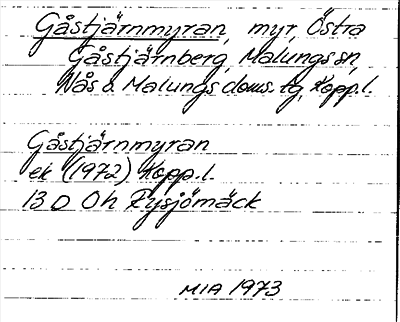 Gåstjärnmyran, myr, Östra
Gåstjärnberg, Malungs sn,
Nås o. Malungs doms. tg, Kopp.l.
Gåstjärnmyran
ek (1972) Kopp.l.
13 D 0h Rysjömäck
MIA 1973